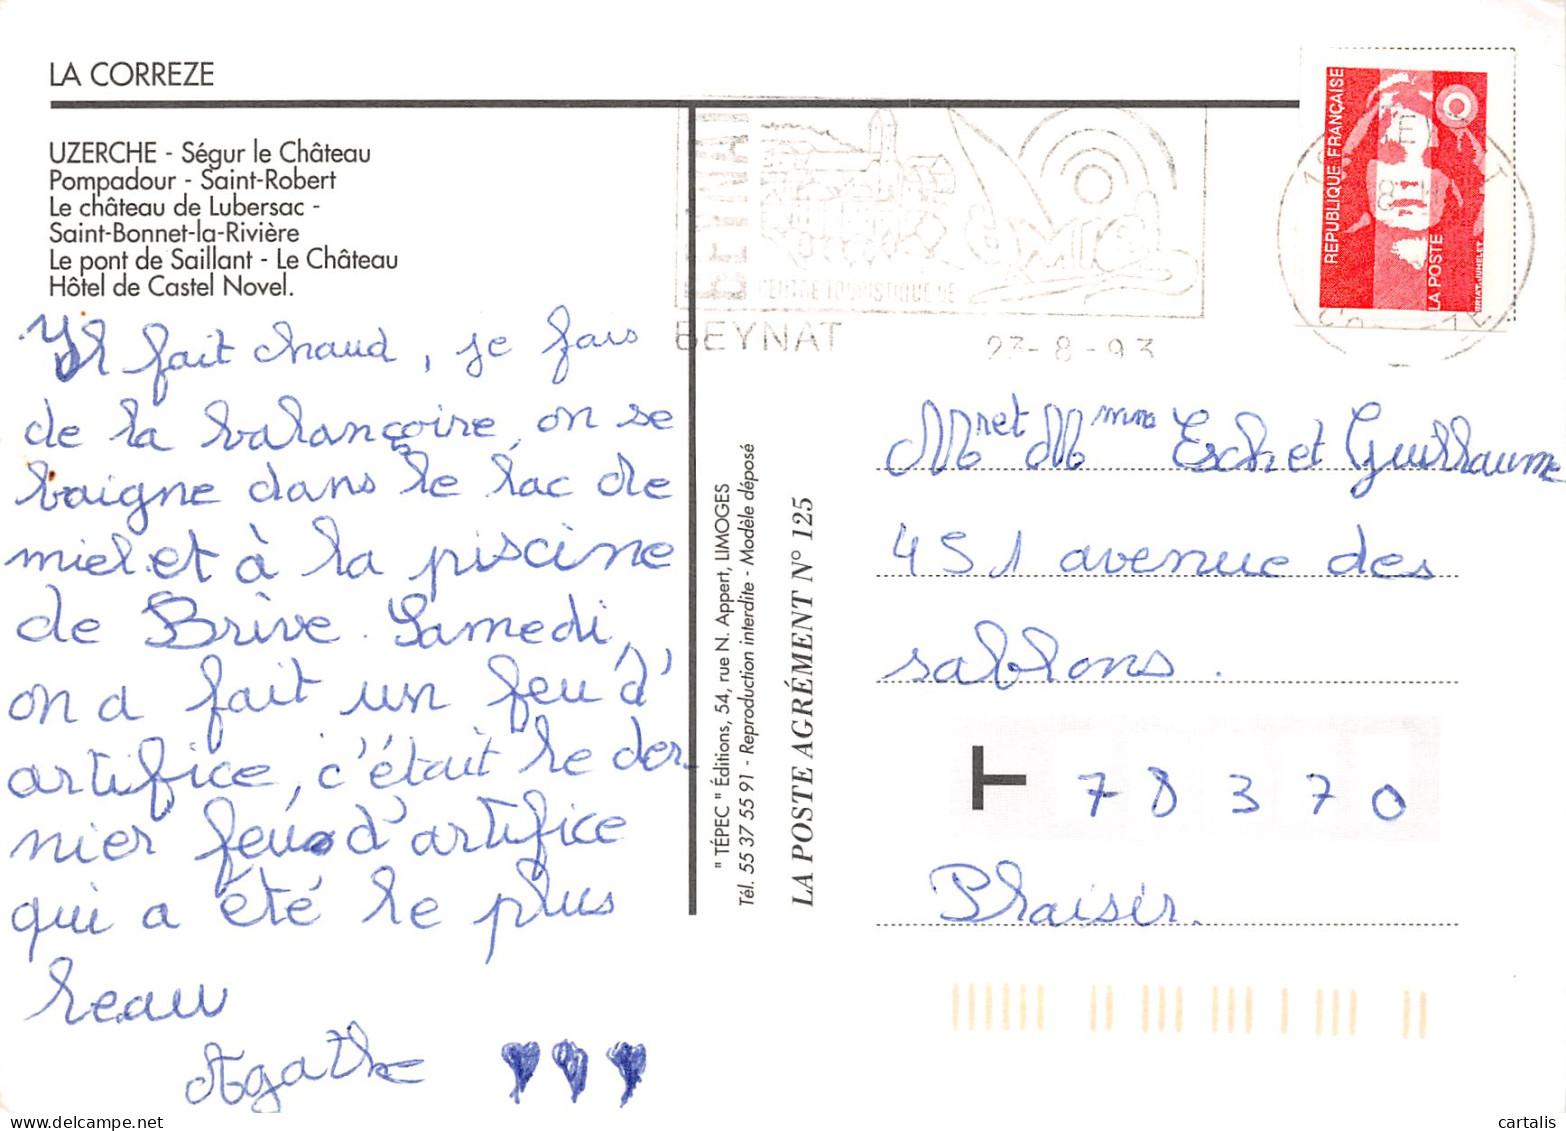 LA CORREZE
UZERCHE - Ségur le Château
Pompadour - Saint-Robert
Le château de Lubersac -
Saint-Bonnet-la-Rivière
Le pont de Saillant - Le Château
Hôtel de Castel Novel.
Il fait chaud, je fais
de la balançoire, on se
baigne dans le lac de
miel et à la piscine
de Brive. Samedi,
on a fait un feu d'
artifice, c'était le der-
nier feu d'artifice
qui a été le plus
beau
Agathe
" TÉPEC " Éditions, 54, rue N. Appert, LIMOGES
Tél. 55 37 55 91 - Reproduction interdite - Modèle déposé
LA POSTE AGRÉMENT N° 125
BEYNAT
CENTRE TOURISTIQUE DE
BEYNAT
23-8-93
RÉPUBLIQUE FRANÇAISE
LA POSTE
Mr et Mme Esch et Guillaume
451 avenue des
sablons.
T 78370
Plaisir.
cartalis
www.delcampe.net